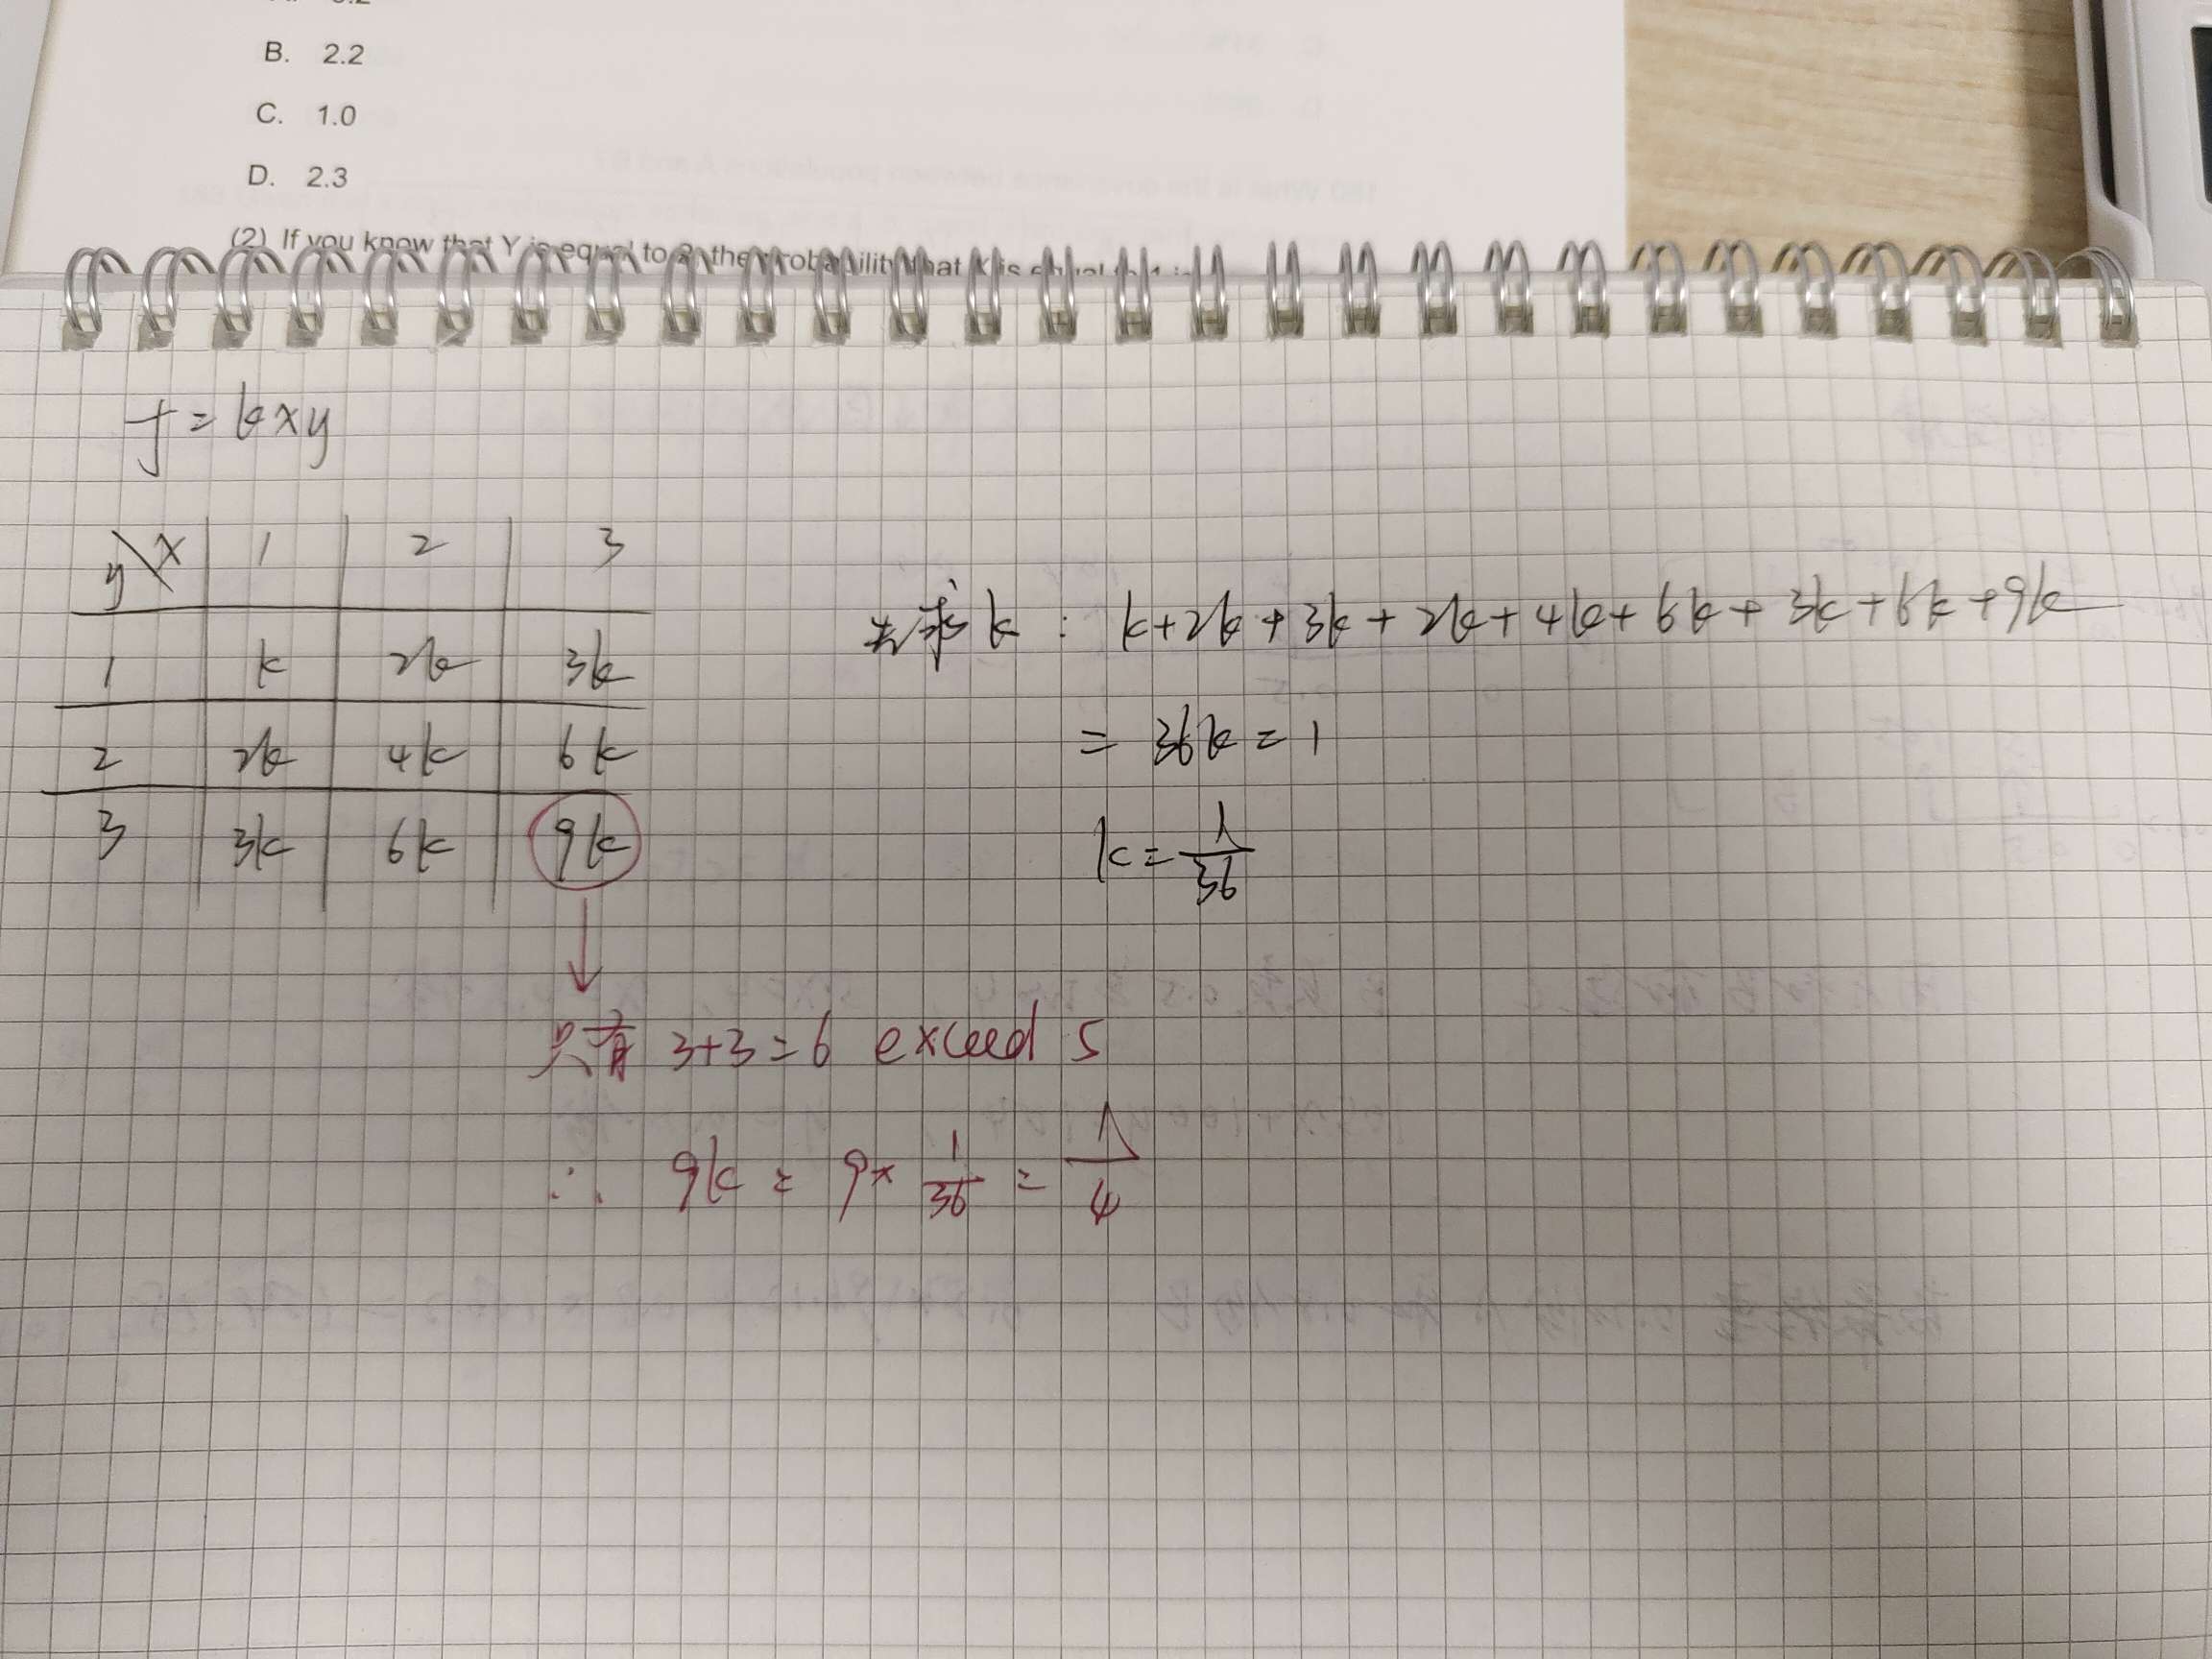 B. 2.2
C. 1.0
D. 2.3
(2) If you know that Y is equal to the probability that X is equal to
f = kxy
y\x 1 2 3
1 k 2k 3k
2 2k 4k 6k
3 3k 6k 9k
先求k : k+2k+3k+2k+4k+6k+3k+6k+9k
= 36k = 1
k = 1/36
只有 3+3=6 exceed 5
∴ 9k = 9× 1/36 = 1/4